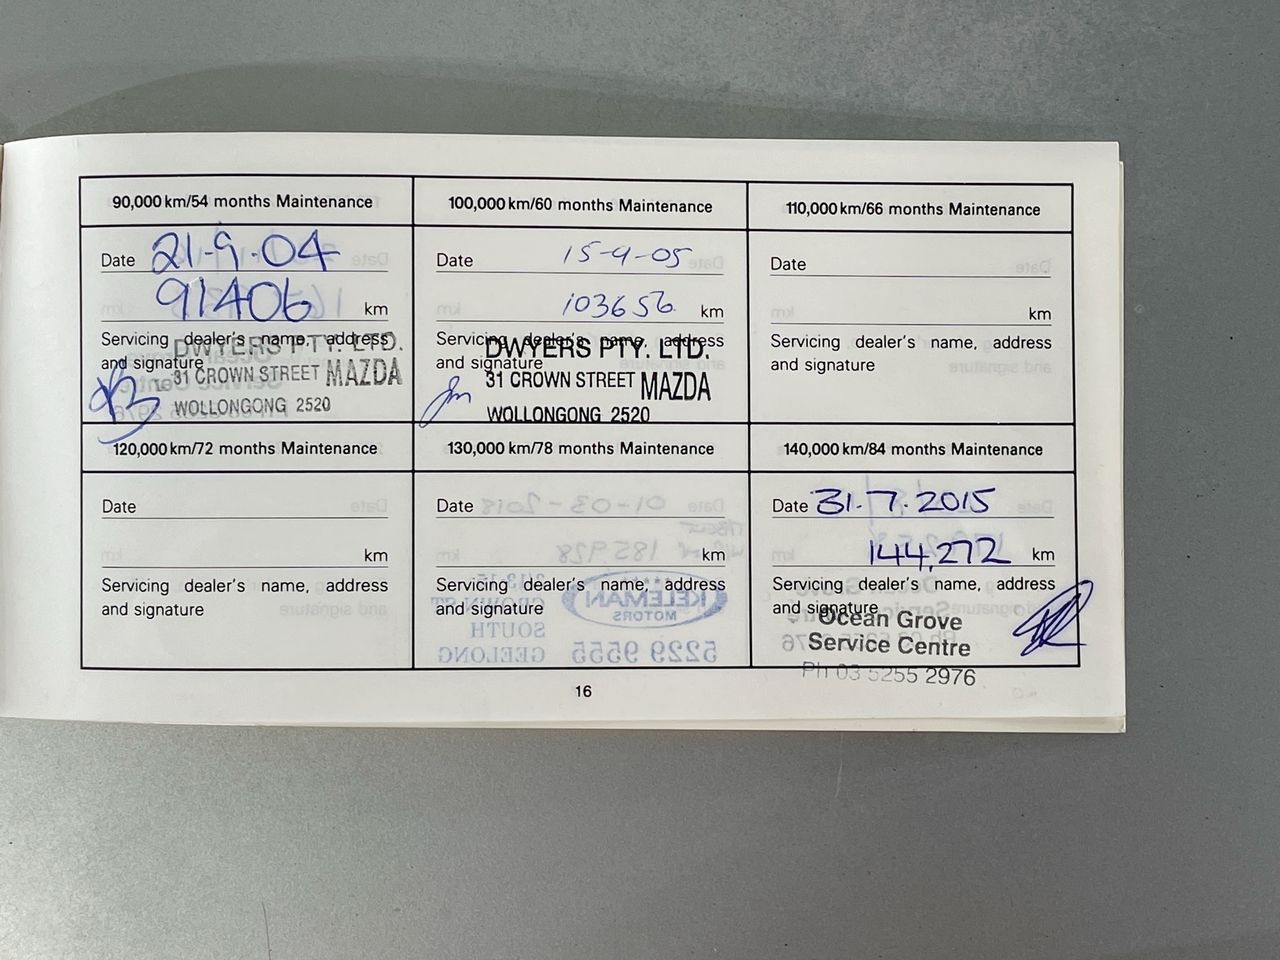 90,000 km/54 months Maintenance
Date 21-9-04
91406 km
Servicing dealer's name, address
and signature
DWYERS PTY. LTD.
31 CROWN STREET MAZDA
WOLLONGONG 2520
100,000 km/60 months Maintenance
Date 15-9-05
103656 km
Servicing dealer's name, address
and signature
DWYERS PTY. LTD.
31 CROWN STREET MAZDA
WOLLONGONG 2520
110,000 km/66 months Maintenance
Date
km
Servicing dealer's name, address
and signature
120,000 km/72 months Maintenance
Date
km
Servicing dealer's name, address
and signature
130,000 km/78 months Maintenance
Date
km
Servicing dealer's name, address
and signature
140,000 km/84 months Maintenance
Date 31.7.2015
144,272 km
Servicing dealer's name, address
and signature
Ocean Grove
Service Centre
Ph 03 5255 2976
16